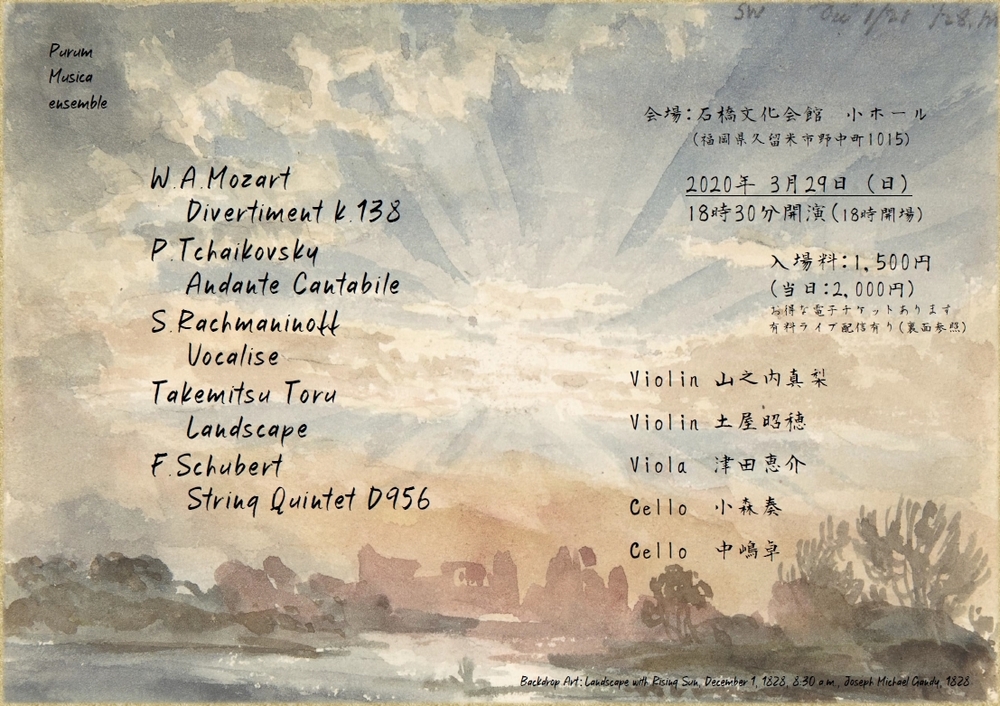 Purum
Musica
ensemble
W.A.Mozart
Divertiment k.138
P.Tchaikovsky
Andante Cantabile
S.Rachmaninoff
Vocalise
Takemitsu Toru
Landscape
F.Schubert
String Quintet D956
会場:石橋文化会館 小ホール
(福岡県久留米市野中町1015)
2020年 3月29日 (日)
18時30分開演(18時開場)
入場料:1,500円
(当日:2,000円)
お得な電子チケットあります
有料ライブ配信有り(裏面参照)
Violin 山之内真梨
Violin 土屋昭穂
Viola 津田恵介
Cello 小森奏
Cello 中嶋卓
Backdrop Art: Landscape with Rising Sun, December 1, 1828, 8:30 a.m., Joseph Michael Gandy, 1828